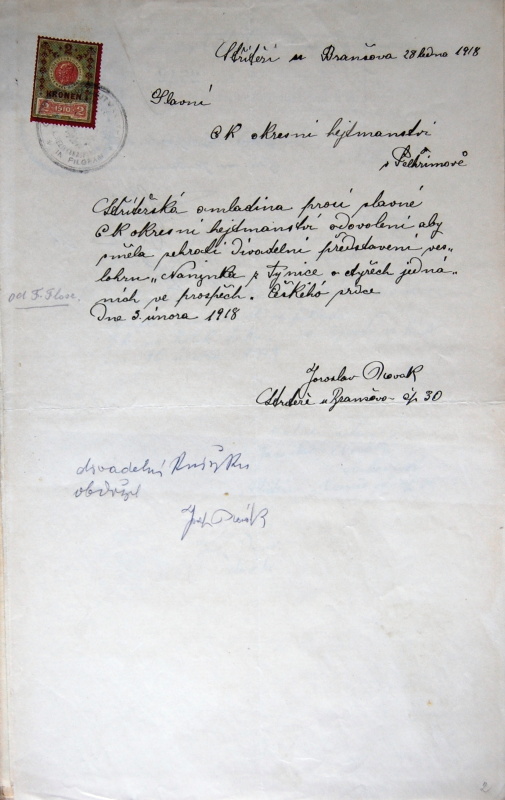 Střiteři u Branšova 28 ledna 1918
Slavní
CK okresní hejtmanství
v Pelhřimově
Střitéřská omladina prosí slavné
CK okresní hejtmanství o dovolení aby
směla sehrati divadelní představení ves„
lohru „Nanynka z Týnice o čtyřech jedná„
ních ve prospěch. Českého srdce
Dne 3. února 1918
od F. Flose.
Jaroslav Novak
Střiteři u Branšova čp 30
divadelní knížku
obdržel
Novák
2
KRONEN
2 1910 2
2